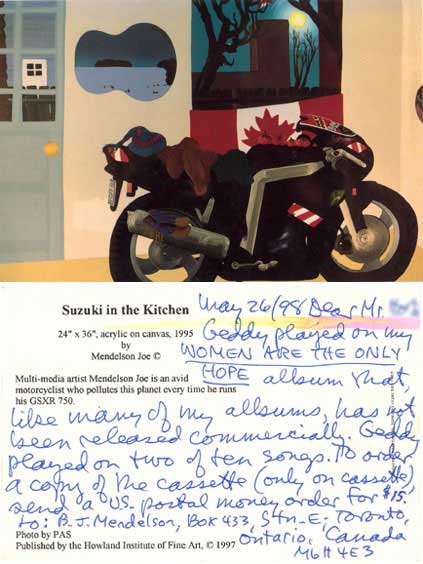 Suzuki in the Kitchen
24" x 36", acrylic on canvas, 1995
by
Mendelson Joe ©
Multi-media artist Mendelson Joe is an avid
motorcyclist who pollutes this planet every time he runs
his GSXR 750.
May 26/98 Dear Mr.
Geddy played on my
WOMEN ARE THE ONLY
HOPE album that,
like many of my albums, has not
been released commercially. Geddy
played on two of ten songs. To order
a copy of the cassette (only on cassette),
send a U.S. postal money order for $15.
to: B.J. Mendelson, Box 433, Stn. E, Toronto,
Ontario, Canada
M6H 4E3
Photo by PAS
Published by the Howland Institute of Fine Art, © 1997